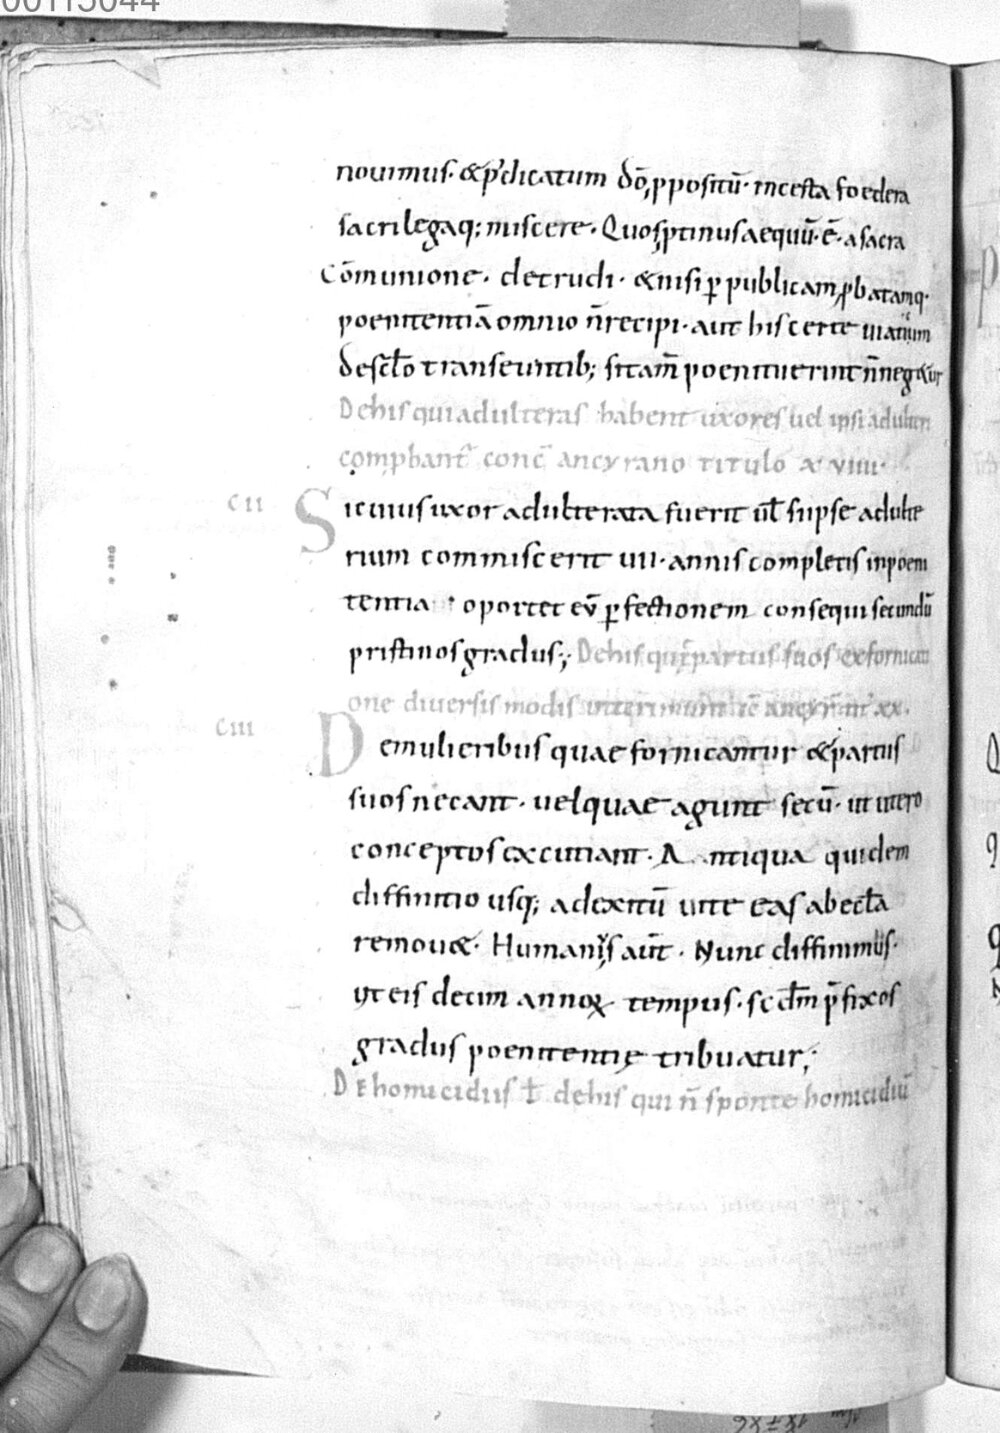 00115044
nouimus· & p̄dicatum dō, ppositū· incesta foedera
sacrilegaq; miscere· Quos ptinus aequū· ē· a sacra
cōmunione· detrudi· & nisi ꝑ publicam, pbatamq·
poenitentiā omnio n̄ recipi· aut his certe uiaticum
de sc̄lo transeuntib; si tam̄ poenituerint n̄ neg&ur
De his qui adulteras habent uxores uel ipsi adulteri
compbant̄ conc̄ ancyrano titulo x viiii·
cii
Si cuius uxor adulterata fuerit ul̄ si ipse adulte
rium commiscerit uii· annis completis in poeni
tentia oportet eū ꝑfectionem consequi secundū
pristinos gradus;, De his qui partus suos ex fornicati
one diuersis modis
ciii
De mulieribus quae fornicantur & partus
suos necant· uel quae agunt secū· ut utero
conceptos excutiant· Antiqua quidem
diffinitio usq; ad exitū uite eas ab eccl̄a
remou&· Humanius aut̄· Nunc diffinimus·
ut eis decim annoꝝ tempus· scd̄m p̄fixos
gradus poenitentię tribuatur;
De homicidiis ł de his qui n̄ sponte homicidiū